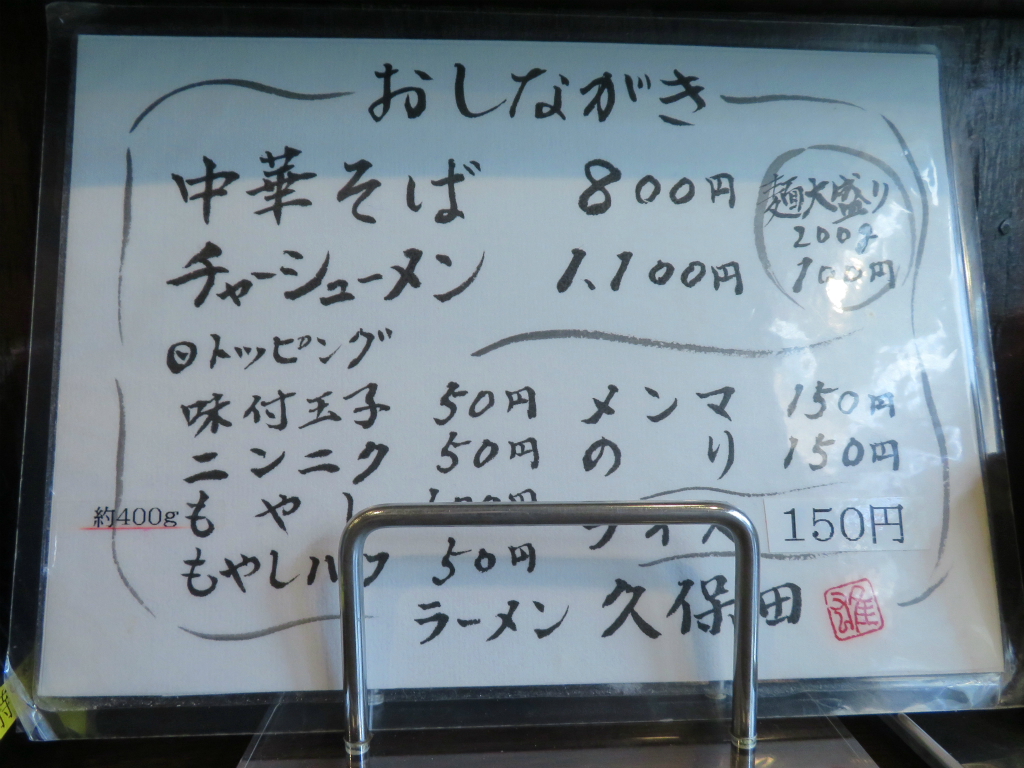 おしながき
中華そば 800円
チャーシューメン 1,100円
麺大盛り
200g
100円
トッピング
味付玉子 50円 メンマ 150円
ニンニク 50円 のり 150円
約400g もやし 100円 ライス 150円
もやしハーフ 50円
ラーメン 久保田